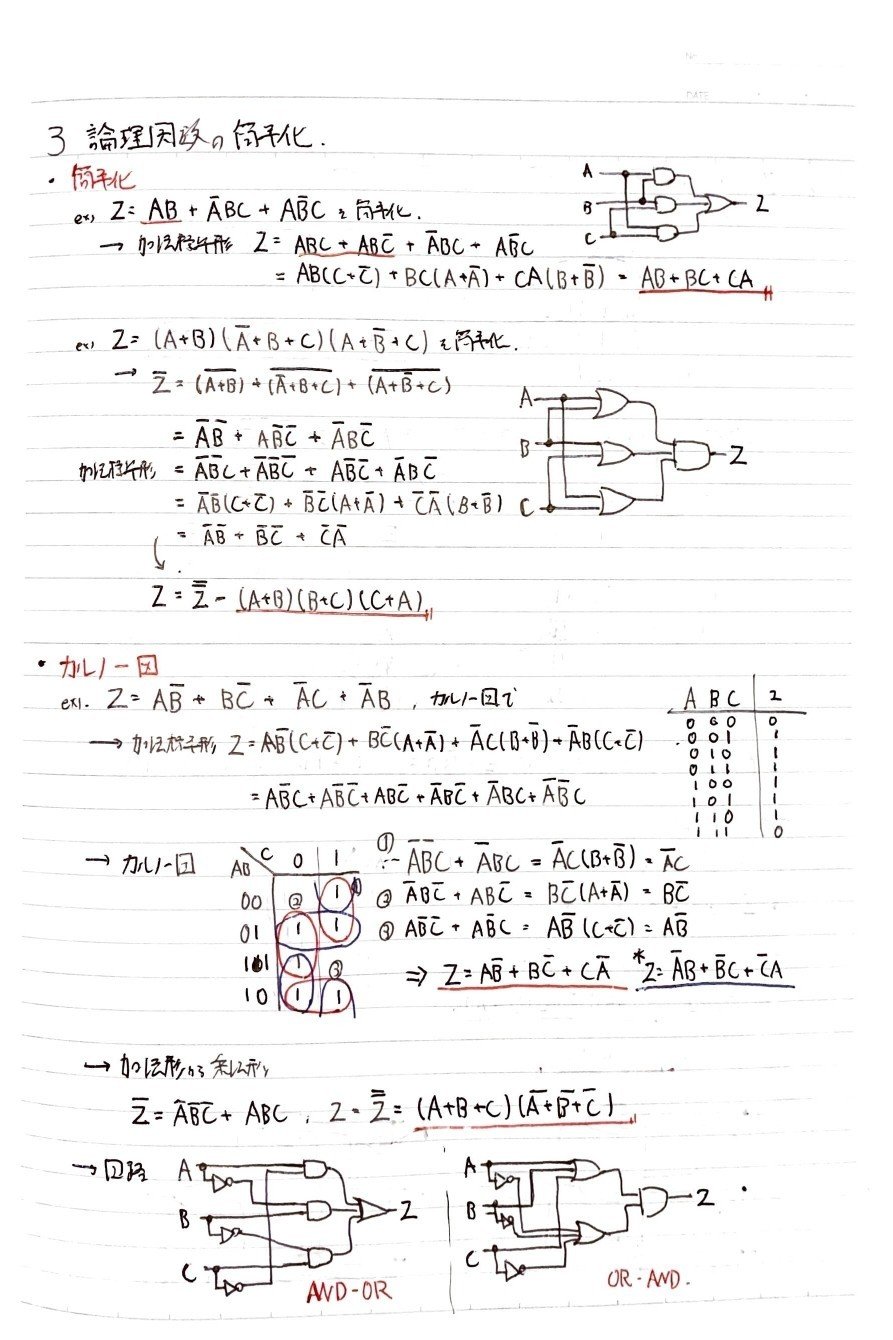 No.
DATE
3 論理関数の簡単化.
・簡単化
ex) Z = AB + A̅BC + AB̅C を簡単化.
→ 加法標準形 Z = ABC + ABC̅ + A̅BC + AB̅C
= AB(C+C̅) + BC(A+A̅) + CA(B+B̅) = AB+BC+CA
A
B
C
Z
ex) Z = (A+B)(A̅+B+C)(A+B̅+C) を簡単化.
→ Z̅ = (A+B)̅ + (A̅+B+C)̅ + (A+B̅+C)̅
= A̅B̅ + AB̅C̅ + A̅BC̅
加法標準形 = A̅B̅C + A̅B̅C̅ + AB̅C̅ + A̅BC̅
= A̅B̅(C+C̅) + B̅C̅(A+A̅) + C̅A̅(B+B̅)
= A̅B̅ + B̅C̅ + C̅A̅
Z = Z̿ = (A+B)(B+C)(C+A)
A
B
C
Z
・カルノー図
ex1. Z = AB̅ + BC̅ + A̅C + A̅B , カルノー図で
→ 加法標準形 Z = AB̅(C+C̅) + BC̅(A+A̅) + A̅C(B+B̅) + A̅B(C+C̅)
= AB̅C + AB̅C̅ + ABC̅ + A̅BC̅ + A̅BC + A̅B̅C
A B C Z
0 0 0 0
0 0 1 1
0 1 0 1
0 1 1 1
1 0 0 1
1 0 1 1
1 1 0 1
1 1 1 0
→ カルノー図
AB C 0 1
00 ② 1 ①
01 1 1
11 1 ③
10 1 1
① A̅B̅C + A̅BC = A̅C(B+B̅) = A̅C
② A̅BC̅ + ABC̅ = BC̅(A+A̅) = BC̅
③ AB̅C̅ + AB̅C = AB̅(C+C̅) = AB̅
⇒ Z = AB̅ + BC̅ + CA̅ *Z = A̅B + B̅C + C̅A
→ 加法形から乗法形
Z̅ = A̅B̅C̅ + ABC , Z = Z̿ = (A+B+C)(A̅+B̅+C̅)
→ 回路
A
B
C
Z
AND-OR
A
B
C
Z
OR-AND.